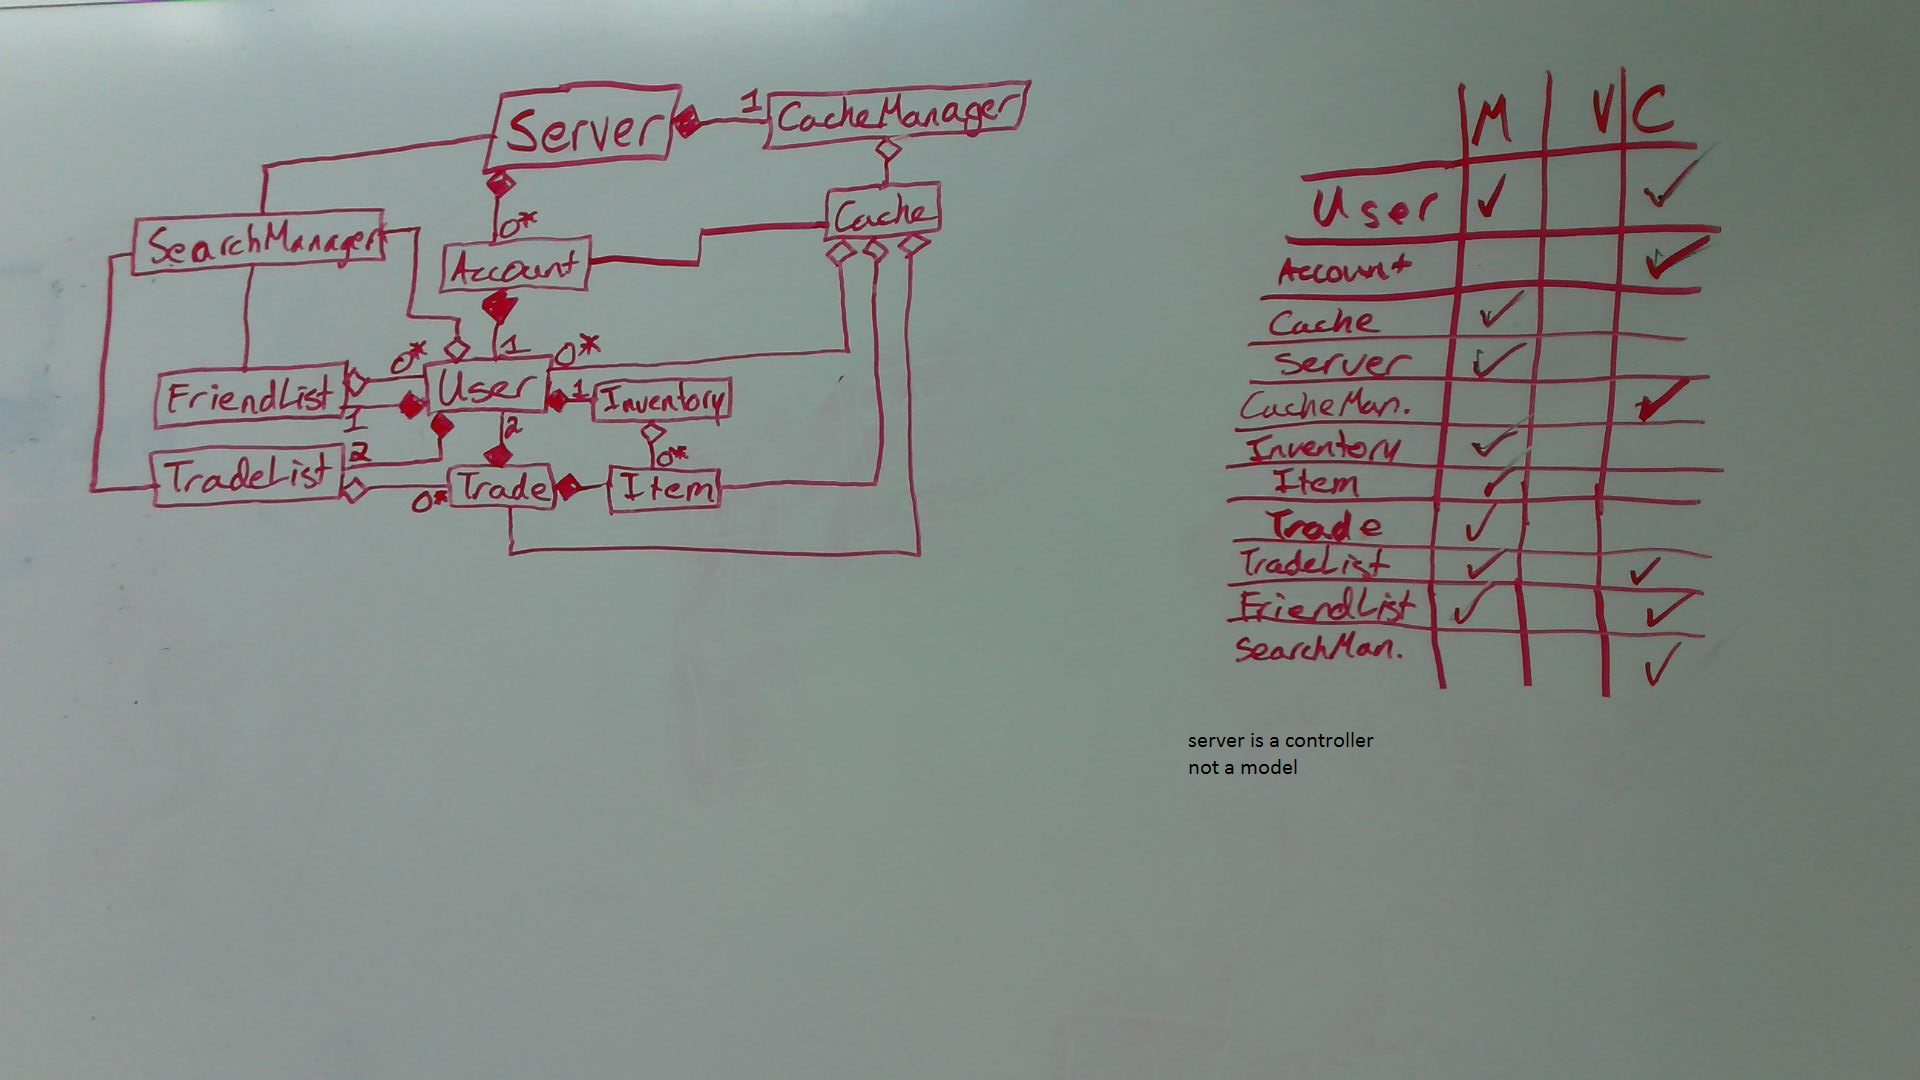 Server
1
CacheManager
0*
SearchManager
Account
Cache
0*
1
0*
FriendList
User
1
Inventory
1
2
2
0*
TradeList
0*
Trade
Item
M V C
User ✓ ✓
Account ✓
Cache ✓
Server ✓
CacheMan. ✓
Inventory ✓
Item ✓
Trade ✓
TradeList ✓ ✓
FriendList ✓ ✓
SearchMan. ✓
server is a controller
not a model